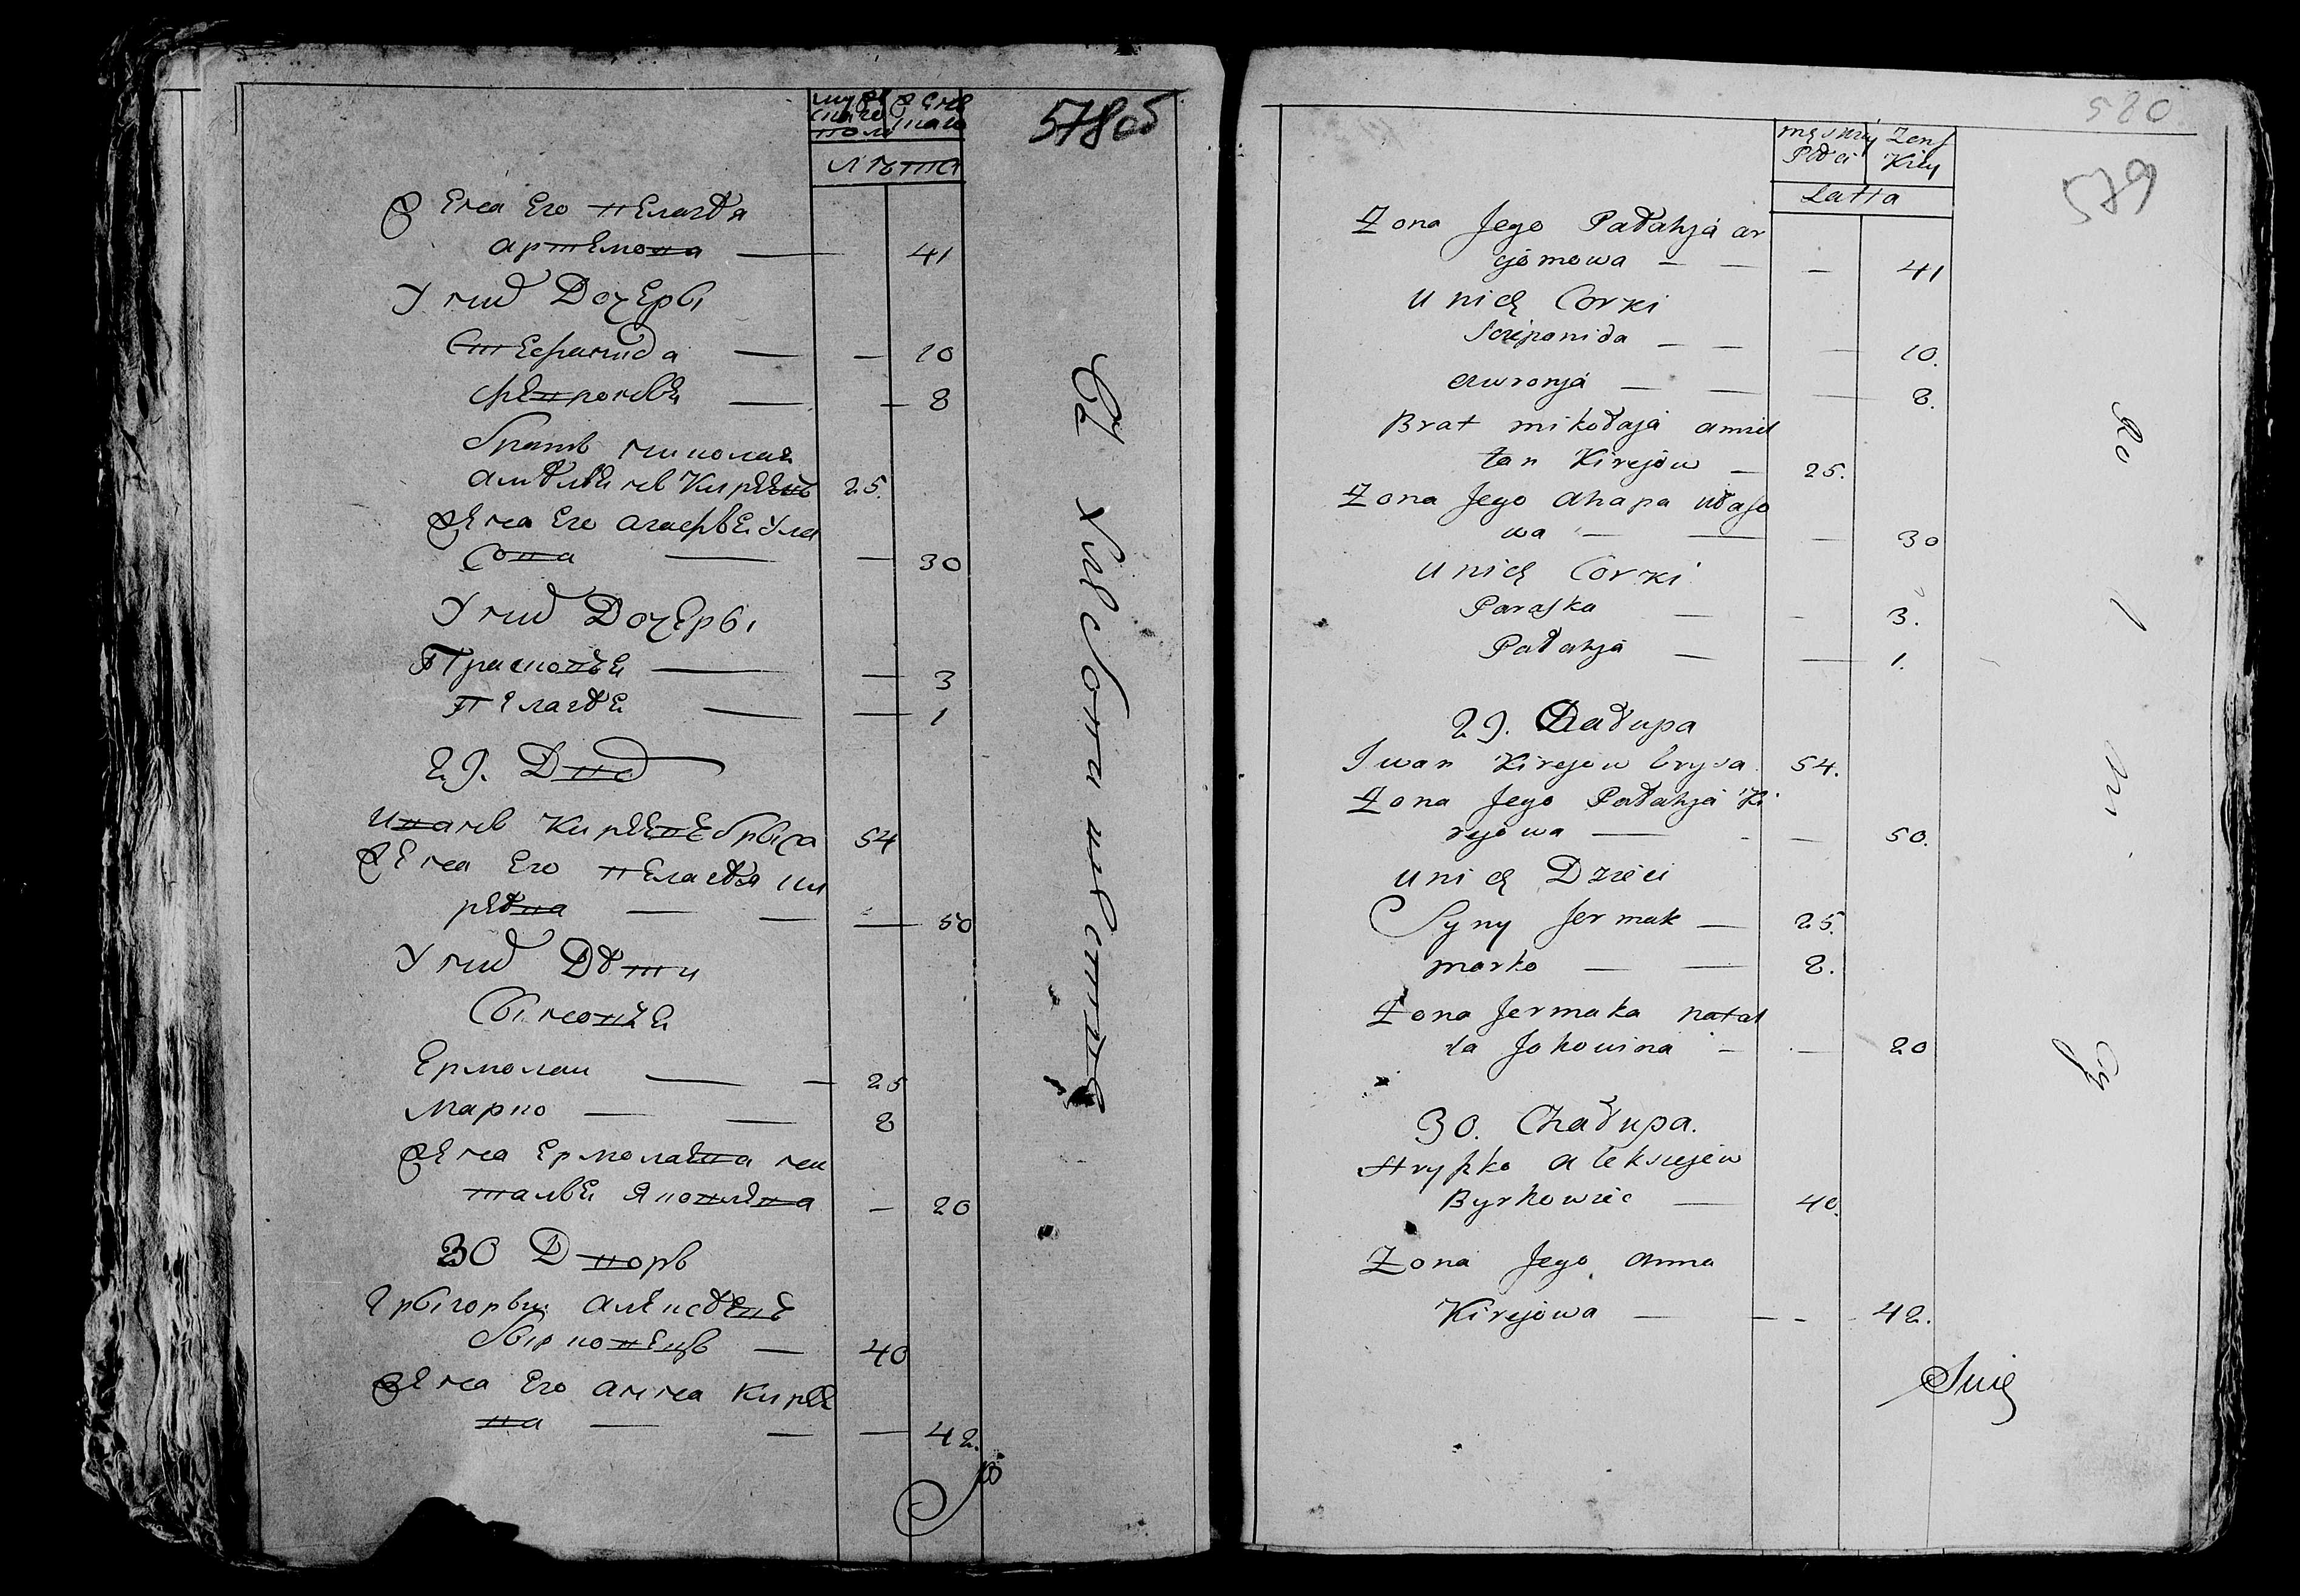 578об
мужескаго пола
женскаго
лѣта
Жена Его пелагѣя
артемова — 41
У нихъ Дочеры
Стефанида — — 10
февроньѣя — — 8
братъ николая
Кирѣевъ 25.
Жена Его агафья Ула
сова — — 30
У нихъ Дочеры
Прасковья — — 3
Пелагѣя — — 1
29. Дво
иванъ Кирѣевъ брыса 54
Жена Его пелагѣя ки
рѣева — — — 50
У нихъ Дѣти
Сыновья
Ермолай — — 25
Марко — — 8
Жена Ермолаева на
талья Яковлева — 20
30 Дворъ
Грыгорый алексѣевъ
бырковецъ — 40
Жена Его анна Кирѣе
ва — — — 42.
580
579
męskiey Płci
Żenskiey
Latta
Zona Jego Pałahja ar
cjomowa — — — 41
U nich Corki
Sciepanida — — — 10.
awronja — — — 8.
Brat mikołaja amiel
tan Kirejow — 25.
Zona Jego ahapa ułaso
wa — — — 30
U nich Corki
Paraska — - 3.
Pałahja — — 1.
29. Chałupa
Iwan Kirejow brysa 54.
Zona Jego Pałahja Ki
rejowa — - — 50.
U nich Dzieci
Syny Jermak — 25.
marko — — 8.
Zona Jermaka natal
la Jakowina — — 20
30. Chałupa.
Hryszko aleksiejew
Byrkowiec — 40.
Zona Jego anna
Kirejowa — - - - 42.